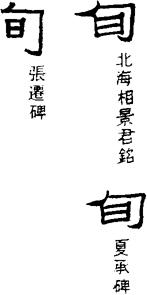 旬
北海相景君銘
旬
夏承碑
旬
張遷碑